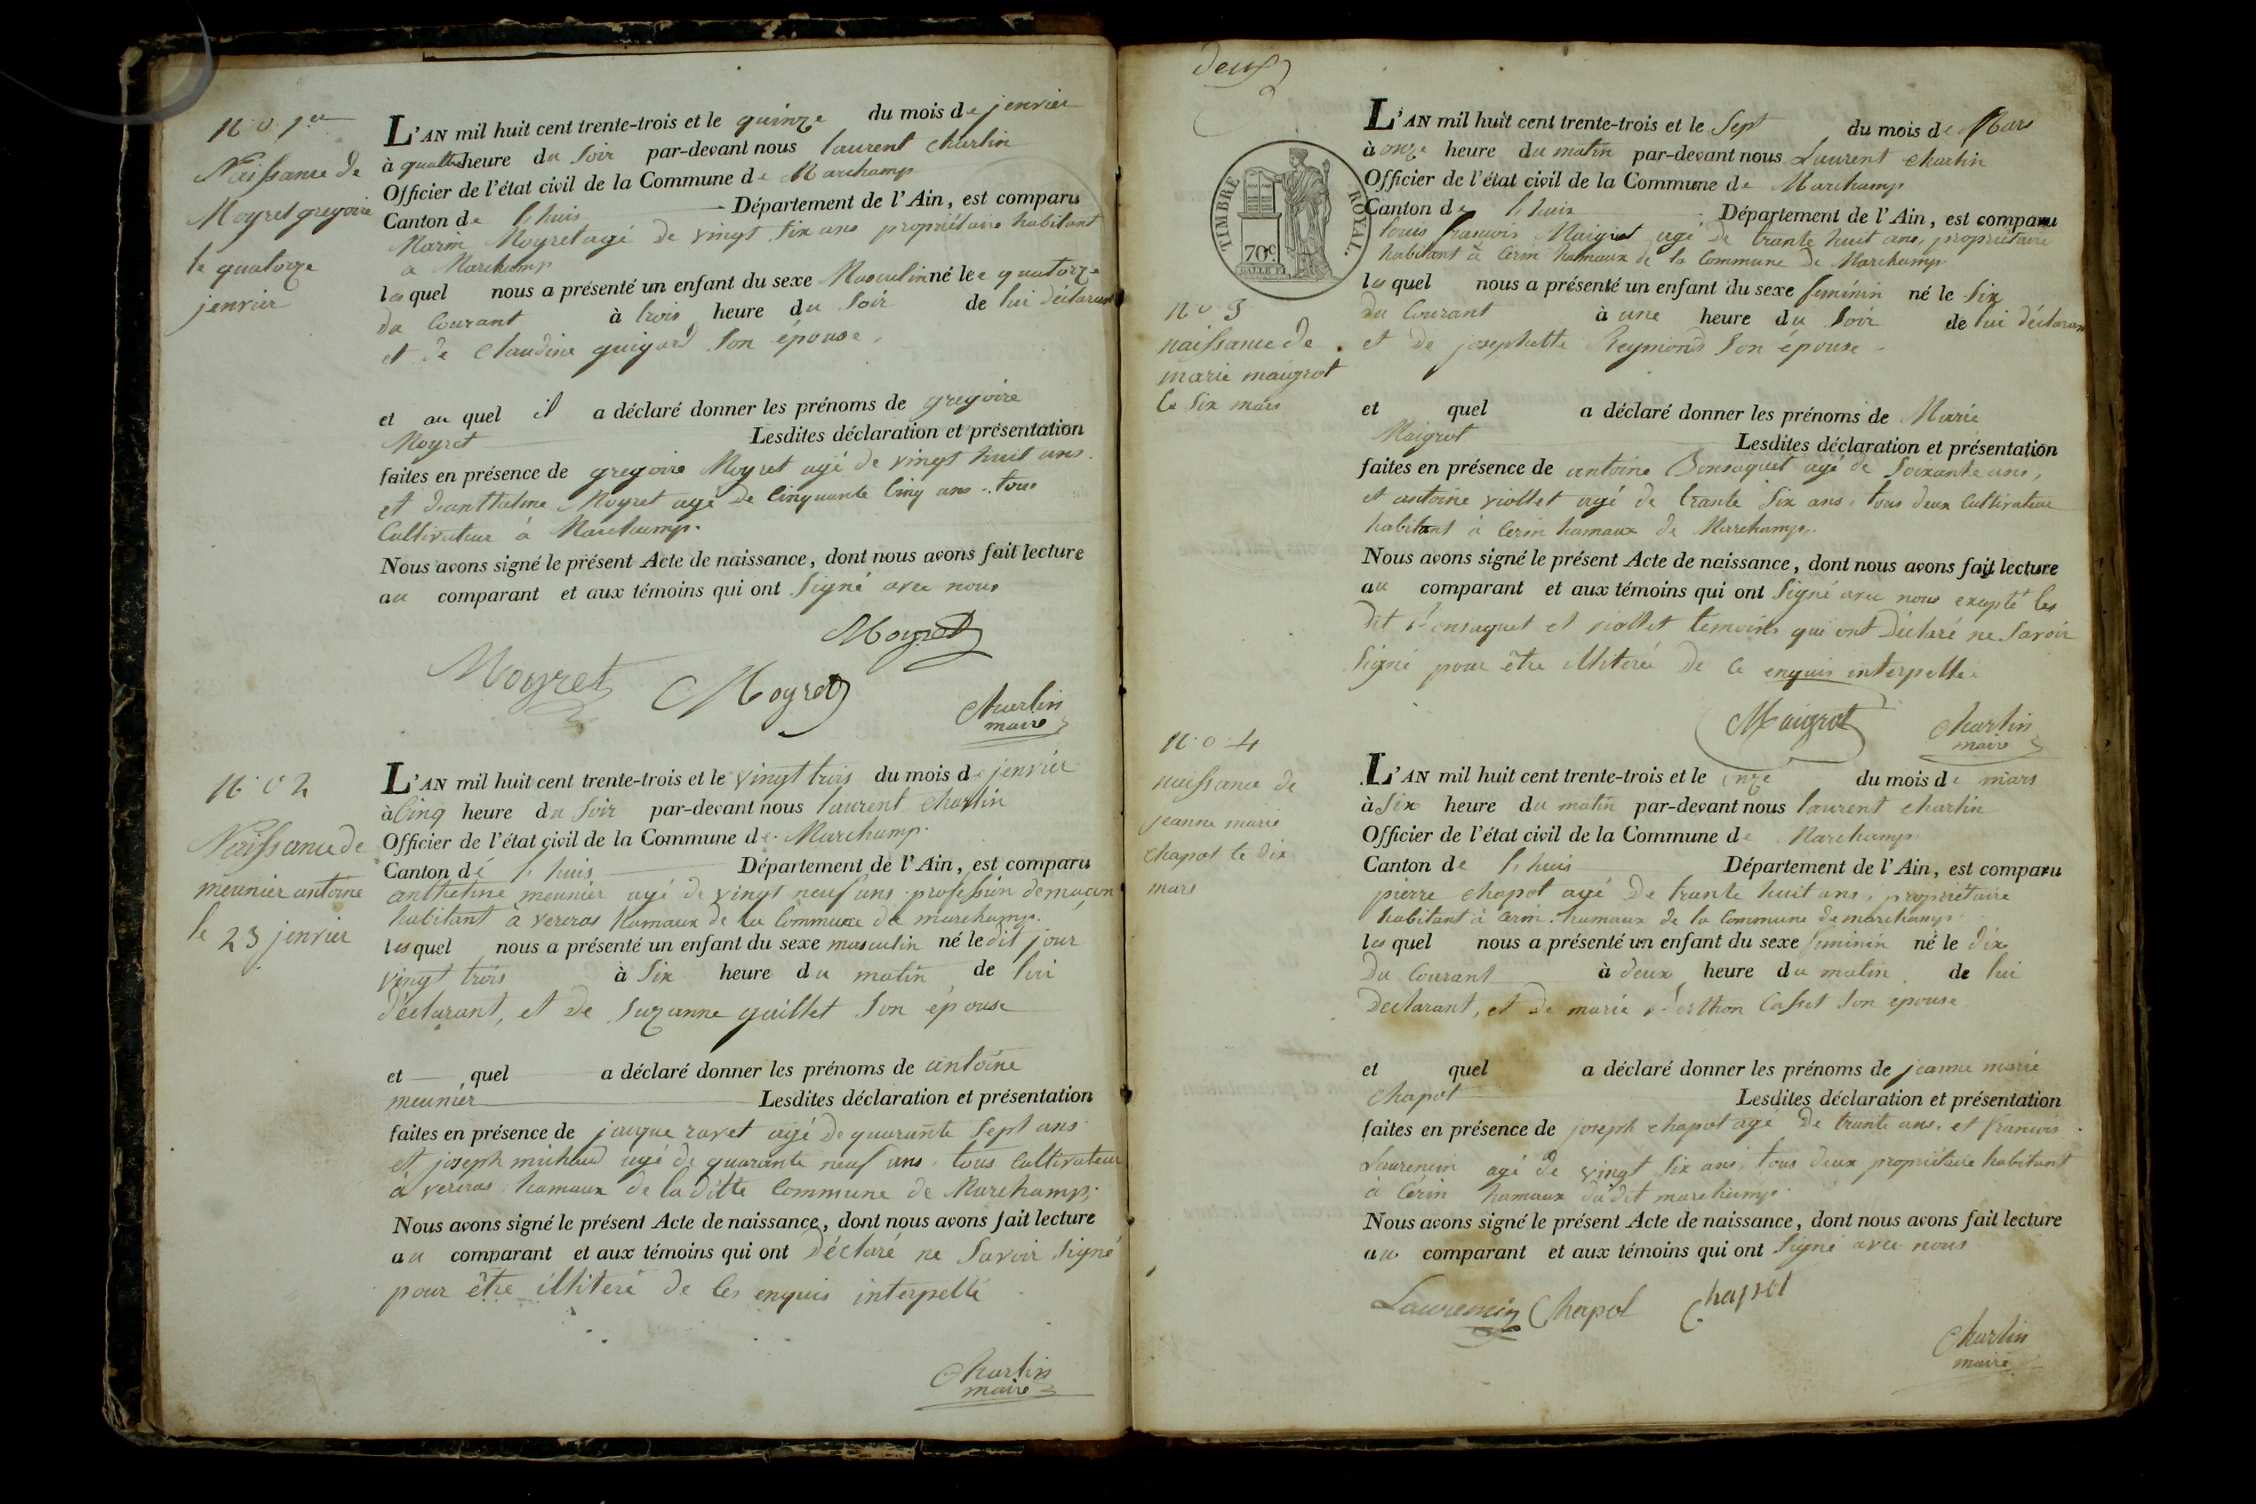 N.o 1er
Naissance de
Moyret gregoire
le quatorze
jenvier
L'AN mil huit cent trente-trois et le quinze du mois de jenvier
à quattre heure du Soir par-devant nous laurent Charlin
Officier de l'état civil de la Commune de Marchamp
Canton de l'huis Département de l'Ain, est comparu
Marin Moyret agé de vingt six ans propriétaire habitant
a Marchamp
lequel nous a présenté un enfant du sexe Masculin né le quatorze
du Courant à trois heure du Soir de lui déclarant
et de Claudine guigard Son épouse,
et au quel il a déclaré donner les prénoms de gregoire
Moyret Lesdites déclaration et présentation
faites en présence de gregoire Moyret agé de vingt huit ans.
et d'anthelme Moyret agé de Cinquante Cinq ans. tous
Cultivateur à Marchamp.
Nous avons signé le présent Acte de naissance, dont nous avons fait lecture
au comparant et aux témoins qui ont Signé avec nous
Moyret
Moyret Moyret
Charlin
maire
N.o 2
Naissance de
meunier antoine
le 23 jenvier
L'AN mil huit cent trente-trois et le vingt trois du mois de jenvier
à Cinq heure du Soir par-devant nous laurent Charlin
Officier de l'état civil de la Commune de Marchamp.
Canton de l'huis Département de l'Ain, est comparu
anthelme meunier agé de vingt neuf ans profession de maçon
habitant à vereras hamaux de la Commune de marchamp.
lesquel nous a présenté un enfant du sexe masculin né le dit jour
vingt trois à Six heure du matin de lui
déclarant, et de Suzanne guillet Son épouse
et quel a déclaré donner les prénoms de antoine
meunier Lesdites déclaration et présentation
faites en présence de jaque ravet agé de quarante Sept ans
et joseph michaud agé de quarante neuf ans. tous Cultivateur
a vereras hamaux de la ditte Commune de Marchamp.
Nous avons signé le présent Acte de naissance, dont nous avons fait lecture
au comparant et aux témoins qui ont déclaré ne Savoir Signé
pour être illiteré de Ces enquis interpellé
Charlin
maire
deux
TIMBRE ROYAL.
70c.
N.o 3
naissance de
marie maigrot
le Six mars
L'AN mil huit cent trente-trois et le Sept du mois de Mars
à onze heure du matin par-devant nous Laurent Charlin
Officier de l'état civil de la Commune de Marchamp
Canton de l'huis Département de l'Ain, est comparu
louis francois Maigrot agé de trante huit ans, propriétaire
habitant à Cerin hamaux de la Commune de Marchamp
lesquel nous a présenté un enfant du sexe feminin né le Six
du Courant à une heure du Soir de lui déclarant
et de josephette Reymond Son épouse
et quel a déclaré donner les prénoms de Marie
Maigrot Lesdites déclaration et présentation
faites en présence de antoine Bonsaquet agé de Soixante ans,
et antoine viollet agé de trante Six ans, tous deux Cultivateur
habitant à Cerin hamaux de Marchamp.
Nous avons signé le présent Acte de naissance, dont nous avons fait lecture
au comparant et aux témoins qui ont Signé avec nous exepté les
dit Bonsaquet et viollet temoins qui ont déclaré ne Savoir
Signé pour être illiteré de Ce enquis interpellé
Maigrot Charlin
maire
N.o 4
naissance de
jeanne marie
Chapot le dix
mars
L'AN mil huit cent trente-trois et le onze du mois de mars
à Six heure du matin par-devant nous laurent Charlin
Officier de l'état civil de la Commune de Marchamp
Canton de l'huis Département de l'Ain, est comparu
pierre Chapot agé de trante huit ans, propriétaire
habitant à Cerin. hamaux de la Commune de marchamp
lesquel nous a présenté un enfant du sexe feminin né le dix
du Courant à deux heure du matin de lui
declarant, et de marie Berthon Casset Son épouse
et quel a déclaré donner les prénoms de jeanne marie
Chapot Lesdites déclaration et présentation
faites en présence de joseph Chapot agé de trante ans. et francois
Laurencin agé de vingt Six ans, tous deux propriétaire habitant
à Cérin hamaux du dit marchamp.
Nous avons signé le présent Acte de naissance, dont nous avons fait lecture
au comparant et aux témoins qui ont Signé avec nous
Laurencin Chapot Chapot
Charlin
maire